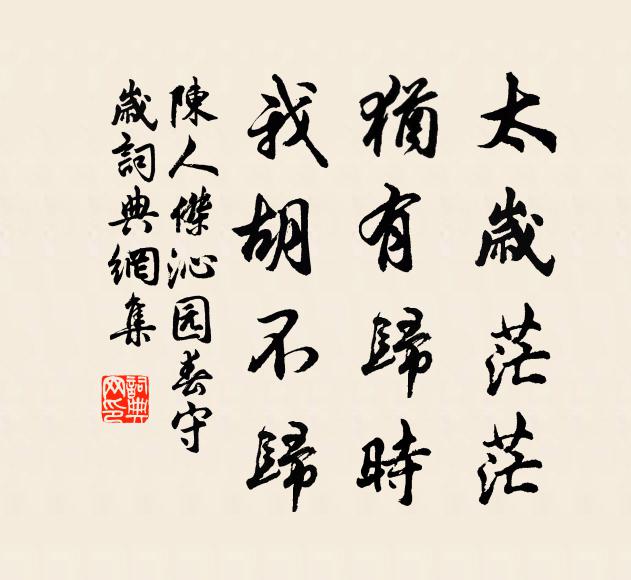 太歲茫茫
猶有歸時
我胡不歸
陳人傑沁园春守
歲詞典網集
詞典
网印